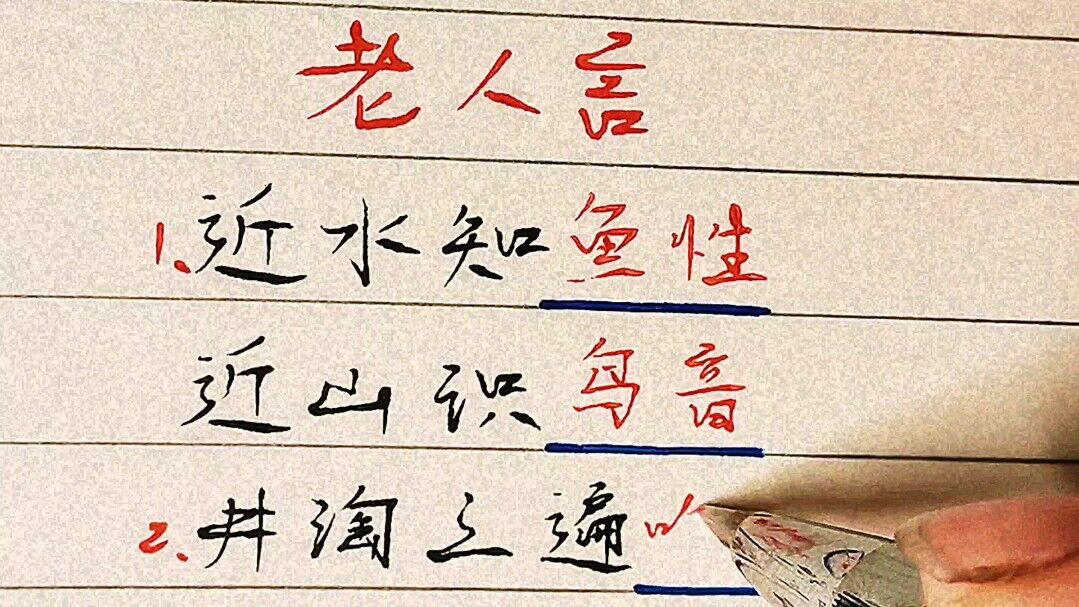 老人言
1.近水知鱼性
近山识鸟音
2.井淘三遍